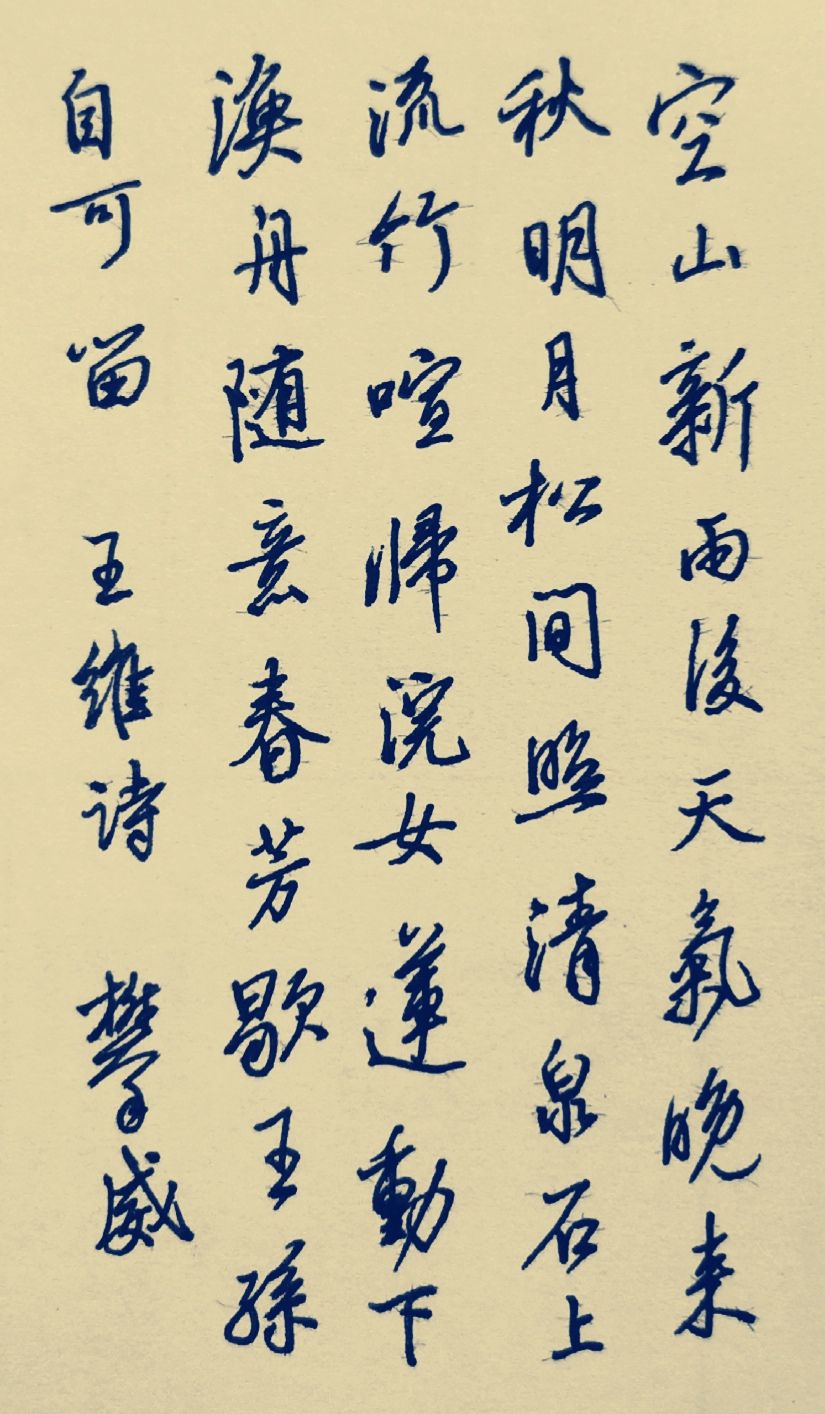 空山新雨後天氣晚来
秋明月松间照清泉石上
流竹喧歸浣女蓮動下
渔舟随意春芳歇王孫
自可留 王维诗 樊威